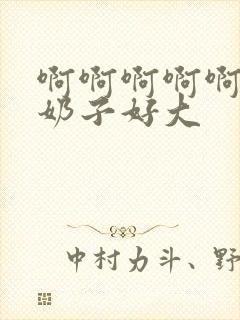 啊啊啊啊啊
奶子好大
中村力斗、野